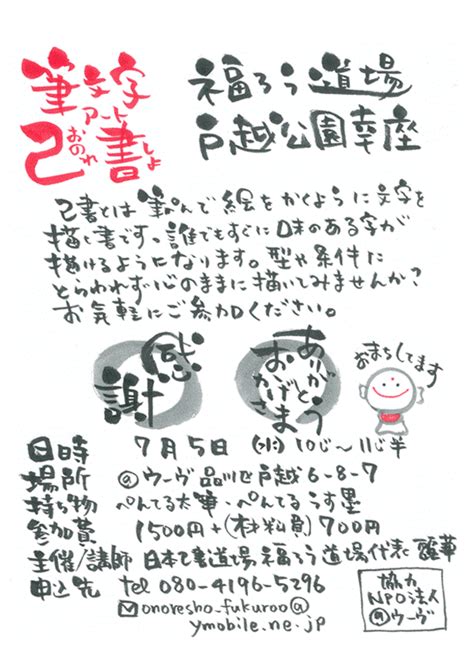 筆文字
アート
己書
おのれ しょ
福ろう道場
戸越公園幸座
己書とは筆ぺんで絵をかくように文字を
描く書です。誰でもすぐに味のある字が
描けるようになります。型や条件に
とらわれず心のままに描いてみませんか?
お気軽にご参加ください。
感謝
ありがとう
おかげさま
おまちしてます
日時 7月5日 (水) 10じ〜11じ半
場所 @ウーヴ 品川区戸越6-8-7
持ち物 ぺんてる太筆・ぺんてるうす墨
参加費 1500円+(材料費)700円
主催/講師 日本己書道場 福ろう道場代表 麗華
申込先 tel 080-4196-5296
onoresho_fukuroo@
ymobile.ne.jp
協力
NPO法人
@ウーヴ